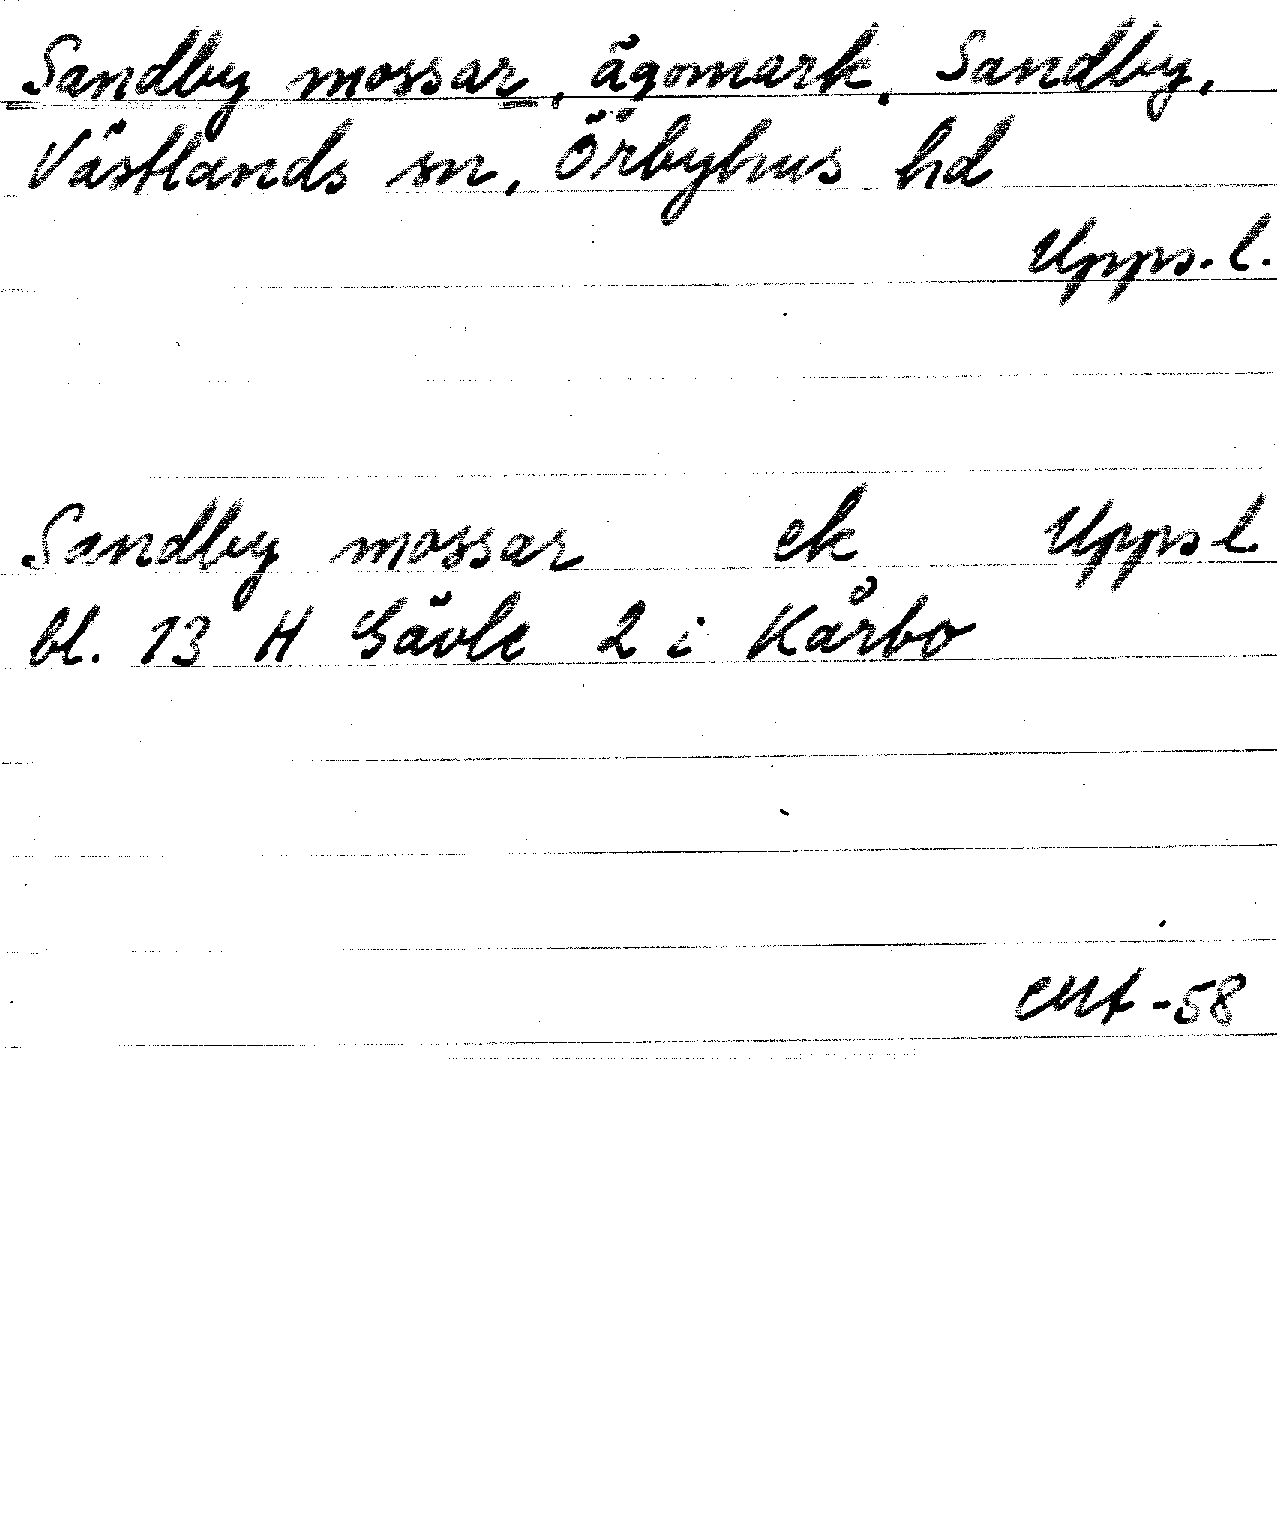 Sandby mossar, ägomark, Sandby,
Västlands sn, Örbyhus hd
Upps. l.
Sandby mossar ek Upps l.
bl. 13 H Gävle 2 i Kårbo
-58